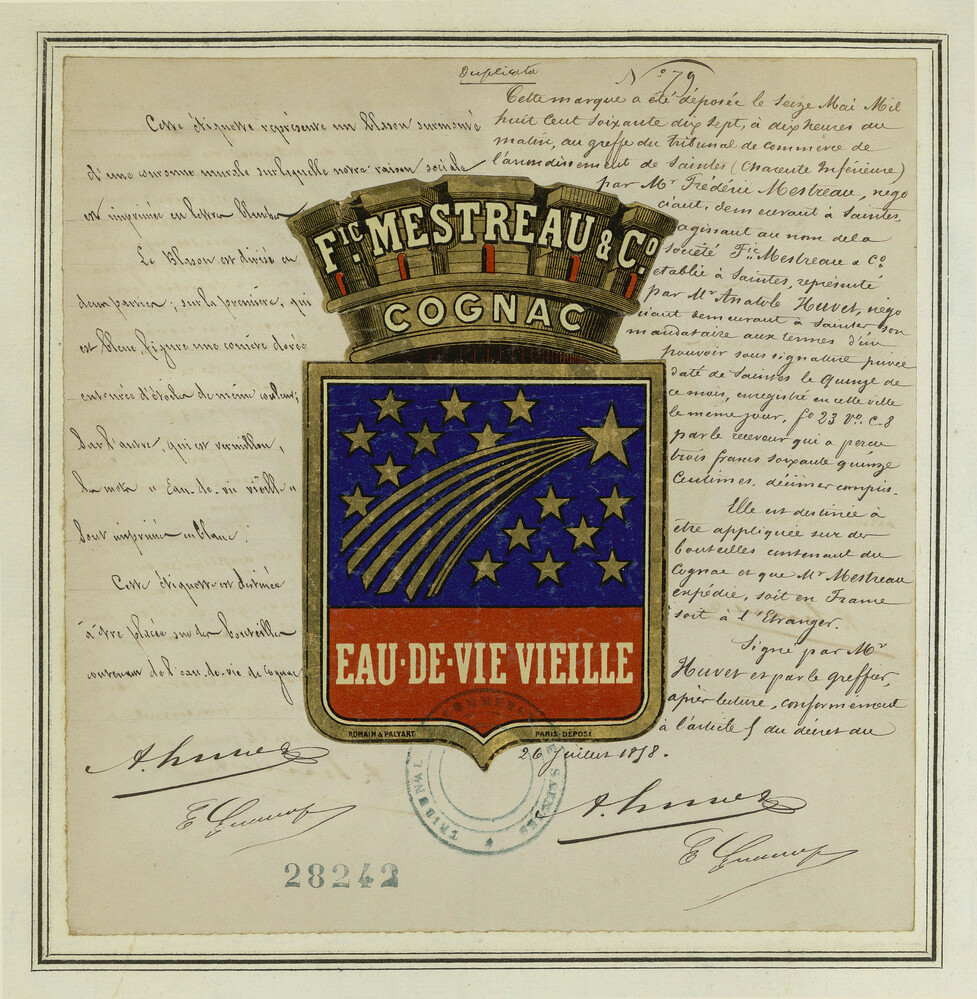 Duplicata
N° 79
Cette étiquette représente un blason surmonté
d'une couronne murale sur laquelle notre raison sociale
est imprimée en lettres blanches
Le Blason est divisé en
deux parties ; sur la première, qui
est bleue figure une comète dorée
entourée d'étoiles de même couleur ;
Sur l'autre, qui est vermillon,
les mots " Eau-de-vie vieille "
sont imprimés en blanc.
Cette étiquette est destinée
à être placée sur des bouteilles
contenant de l'eau-de-vie de Cognac
Cette marque a été déposée le seize Mai Mil
huit cent soixante dix sept, à dix heures du
matin, au greffe du tribunal de commerce de
l'arrondissement de Saintes (Charente Inférieure)
par Mr Frédéric Mestreau, négo
ciant, demeurant à Saintes,
agissant au nom de la
Société Fic Mestreau & Co
établie à Saintes, représenté
par Mr Anatole Huvet, négo
ciant demeurant à Saintes son
mandataire aux termes d'un
pouvoir sous signature privée
daté de Saintes le Quinze de
ce mois, enregistré en cette ville
le même jour, fo 23 Vo. C. 8
par le receveur qui a perçu
trois francs soixante quinze
Centimes, décimes compris.
Elle est destinée à
être appliquée sur des
bouteilles contenant du
Cognac et que Mr Mestreau
expédie, soit en France
soit à l'Etranger.
Signé par Mr
Huvet et par le greffier,
après lecture, conformément
à l'article 5 du décret du
26 Juillet 1858.
FIC. MESTREAU & CO.
COGNAC
EAU·DE·VIE VIEILLE
ROMAIN & PALYART PARIS DÉPOSÉ
TRIBUNAL COMMERCE SAINTES
A. Huvet
A. Huvet
28242